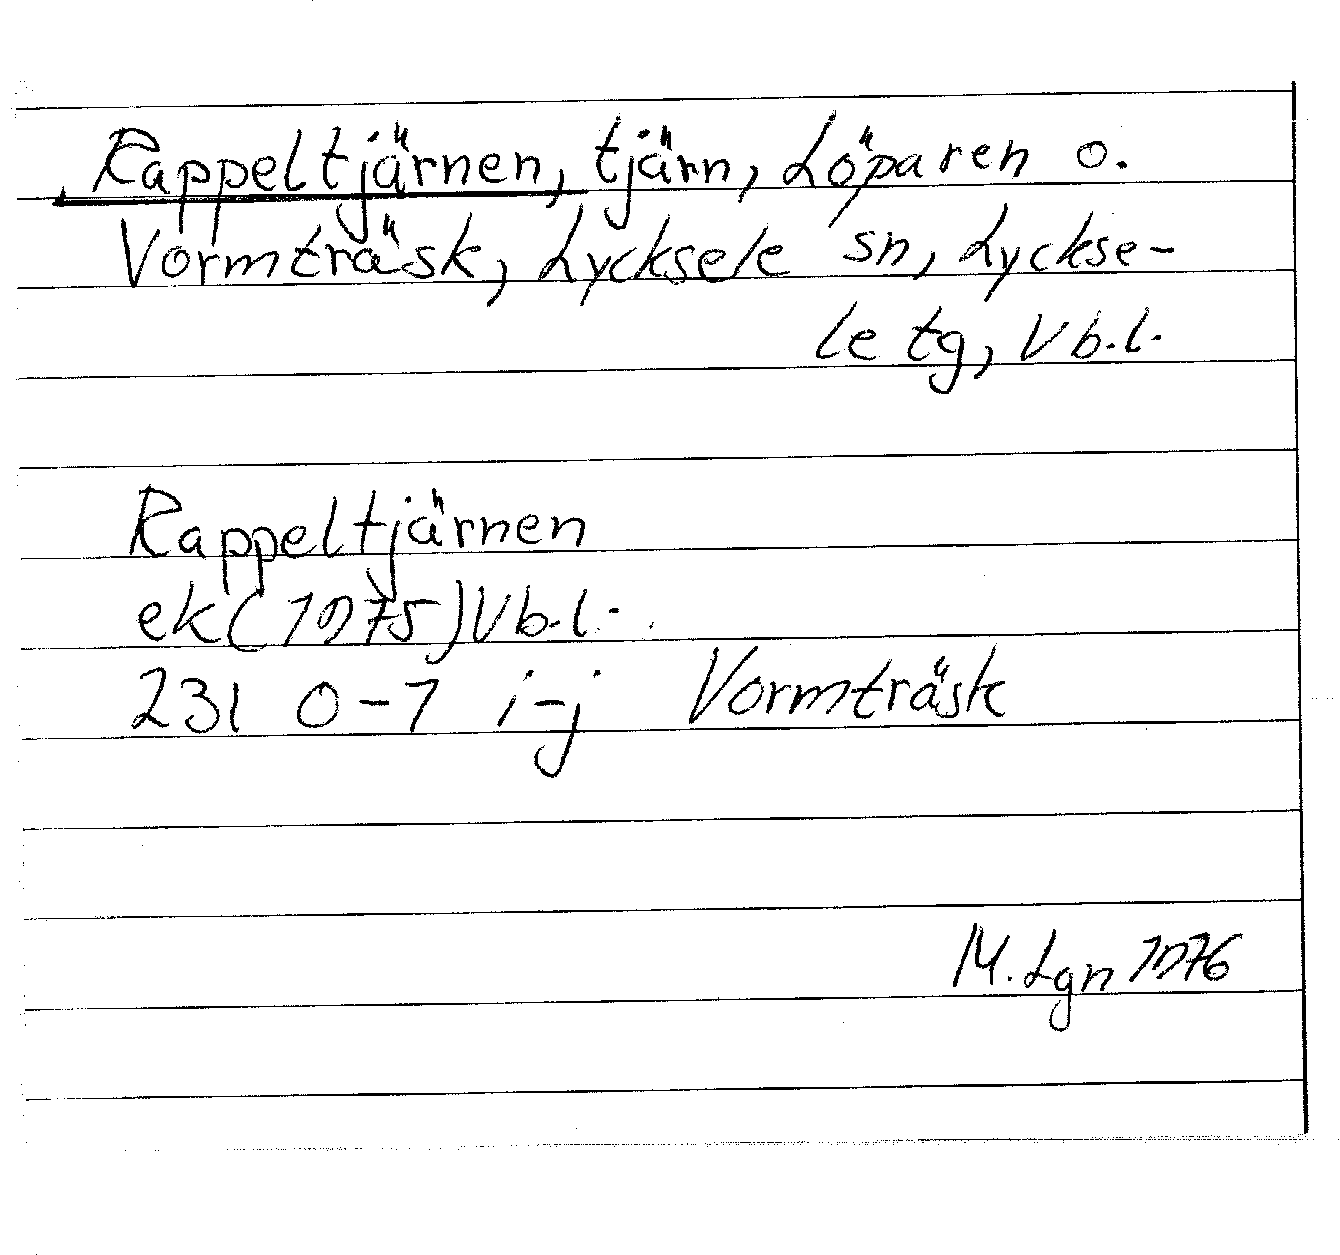 Rappeltjärnen, tjärn, Löparen o.
Vormträsk, Lycksele sn, Lyckse-
le tg, Vb.l.
Rappeltjärnen
ek (1975) Vb.l.
231 0-1 i-j Vormträsk
M. Lgn 1976